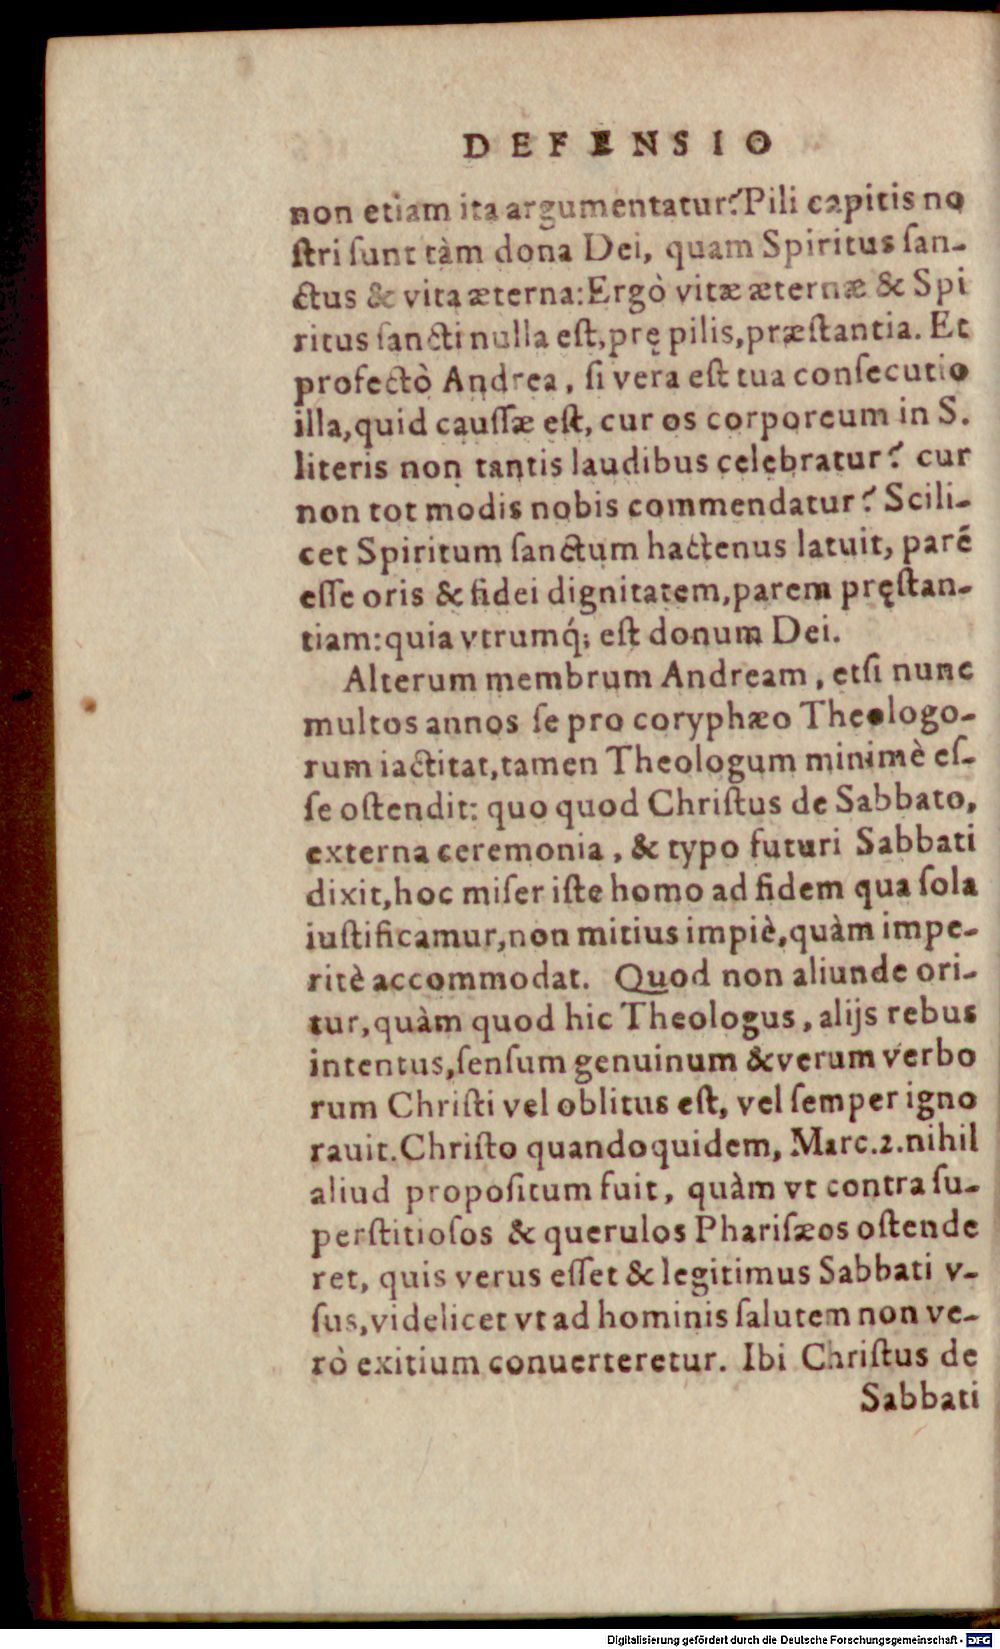 DEFENSIO
non etiam ita argumentatur? Pili capitis no
ſtri ſunt tàm dona Dei, quam Spiritus ſan-
ctus & vita æterna: Ergò vitæ æternæ & Spi
ritus ſancti nulla eſt, prę pilis, præſtantia. Et
profectò Andrea, ſi vera eſt tua conſecutio
illa, quid cauſſæ eſt, cur os corporeum in S.
literis non tantis laudibus celebratur? cur
non tot modis nobis commendatur? Scili-
cet Spiritum ſanctum hactenus latuit, parẽ
eſſe oris & fidei dignitatem, parem pręſtan-
tiam: quia vtrumq́; eſt donum Dei.
Alterum membrum Andream, etſi nunc
multos annos ſe pro coryphæo Theologo-
rum iactitat, tamen Theologum minimè eſ-
ſe oſtendit: quo quod Chriſtus de Sabbato,
externa ceremonia, & typo futuri Sabbati
dixit, hoc miſer iſte homo ad fidem qua ſola
iuſtificamur, non mitius impiè, quàm impe-
ritè accommodat. Quod non aliunde ori-
tur, quàm quod hic Theologus, alijs rebus
intentus, ſenſum genuinum & verum verbo
rum Chriſti vel oblitus eſt, vel ſemper igno
rauit. Chriſto quandoquidem, Marc. 2. nihil
aliud propoſitum fuit, quàm vt contra ſu-
perſtitioſos & querulos Phariſæos oſtende
ret, quis verus eſſet & legitimus Sabbati v-
ſus, videlicet vt ad hominis ſalutem non ve-
rò exitium conuerteretur. Ibi Chriſtus de
Sabbati
Digitalisierung gefördert durch die Deutsche Forschungsgemeinschaft - DFG